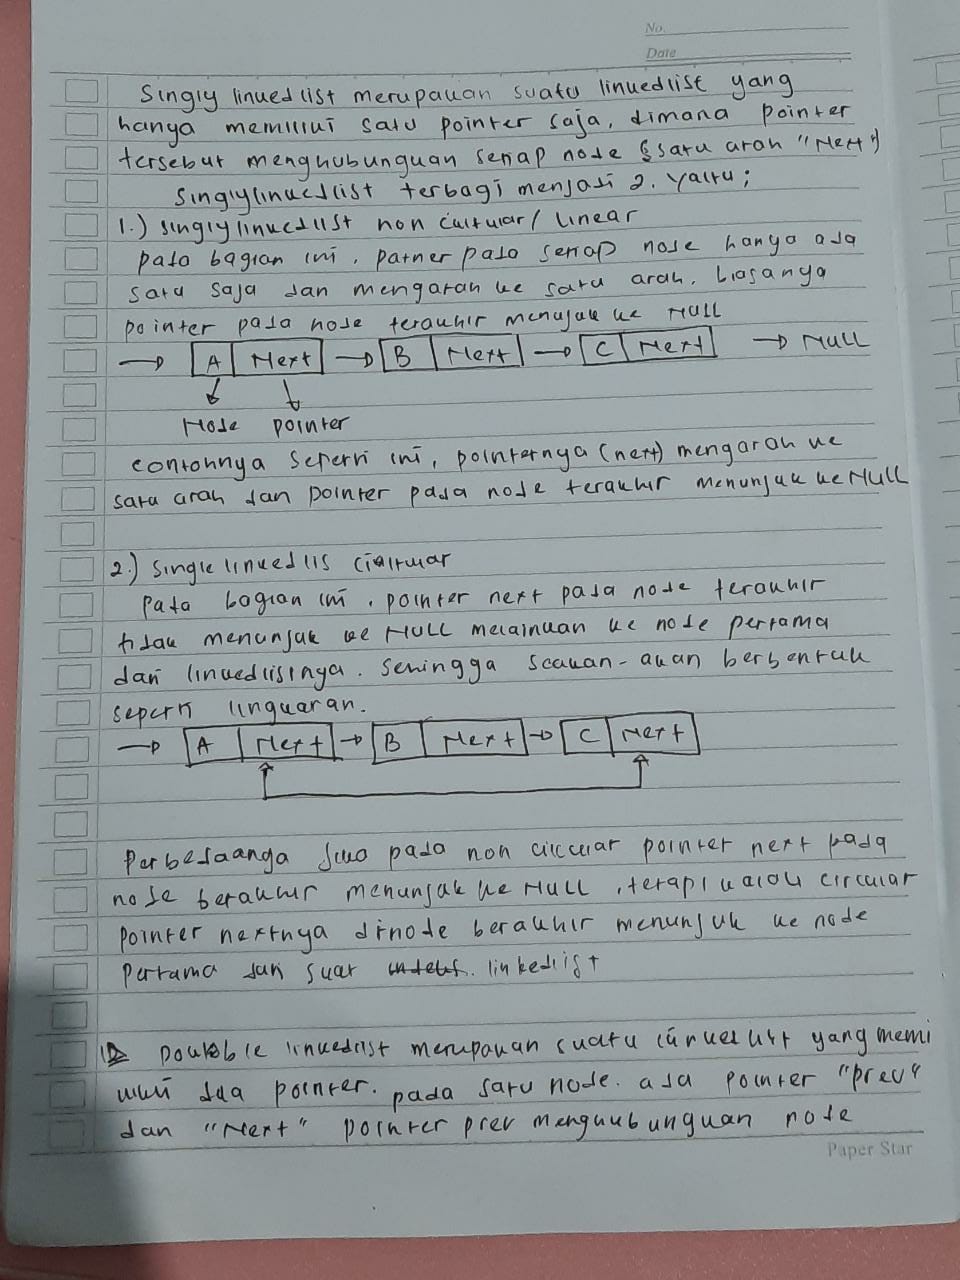 No.
Date
Singly linkedlist merupakan suatu linkedlist yang
hanya memiliki satu pointer saja, dimana pointer
tersebut menghubungkan setiap node satu arah "Next")
Singlylinkedlist terbagi menjadi 2. Yaitu;
1.) singlylinkedlist non cirkular / linear
pada bagian ini, patner pada setiap node hanya ada
satu saja dan mengarah ke satu arah, biasanya
pointer pada node terakhir menujuk ke NULL
→ A Next → B Next → C Next → NULL
Node pointer
contohnya seperti ini, pointernya (next) mengarah ke
satu arah dan pointer pada node terakhir menunjuk ke NULL
2.) single linked lis cirkular
Pada bagian ini, pointer next pada node terakhir
tidak menunjuk ke NULL melainkan ke node pertama
dari linkedlisnya. sehingga seakan-akan berbentuk
seperti lingkaran.
→ A Next → B Next → C Next
Perbedaanga pada non circular pointer next pada
node berakhir menunjuk ke NULL, tetapi kalou circular
pointer nextnya dinode berakhir menunjuk ke node
pertama dari suat linkedlist
Double linkedlist merupakan suatu linkedlist yang memi
liki dua pointer. pada satu node. ada pointer "prev"
dan "Next" pointer prev menghubungkan node
Paper Star